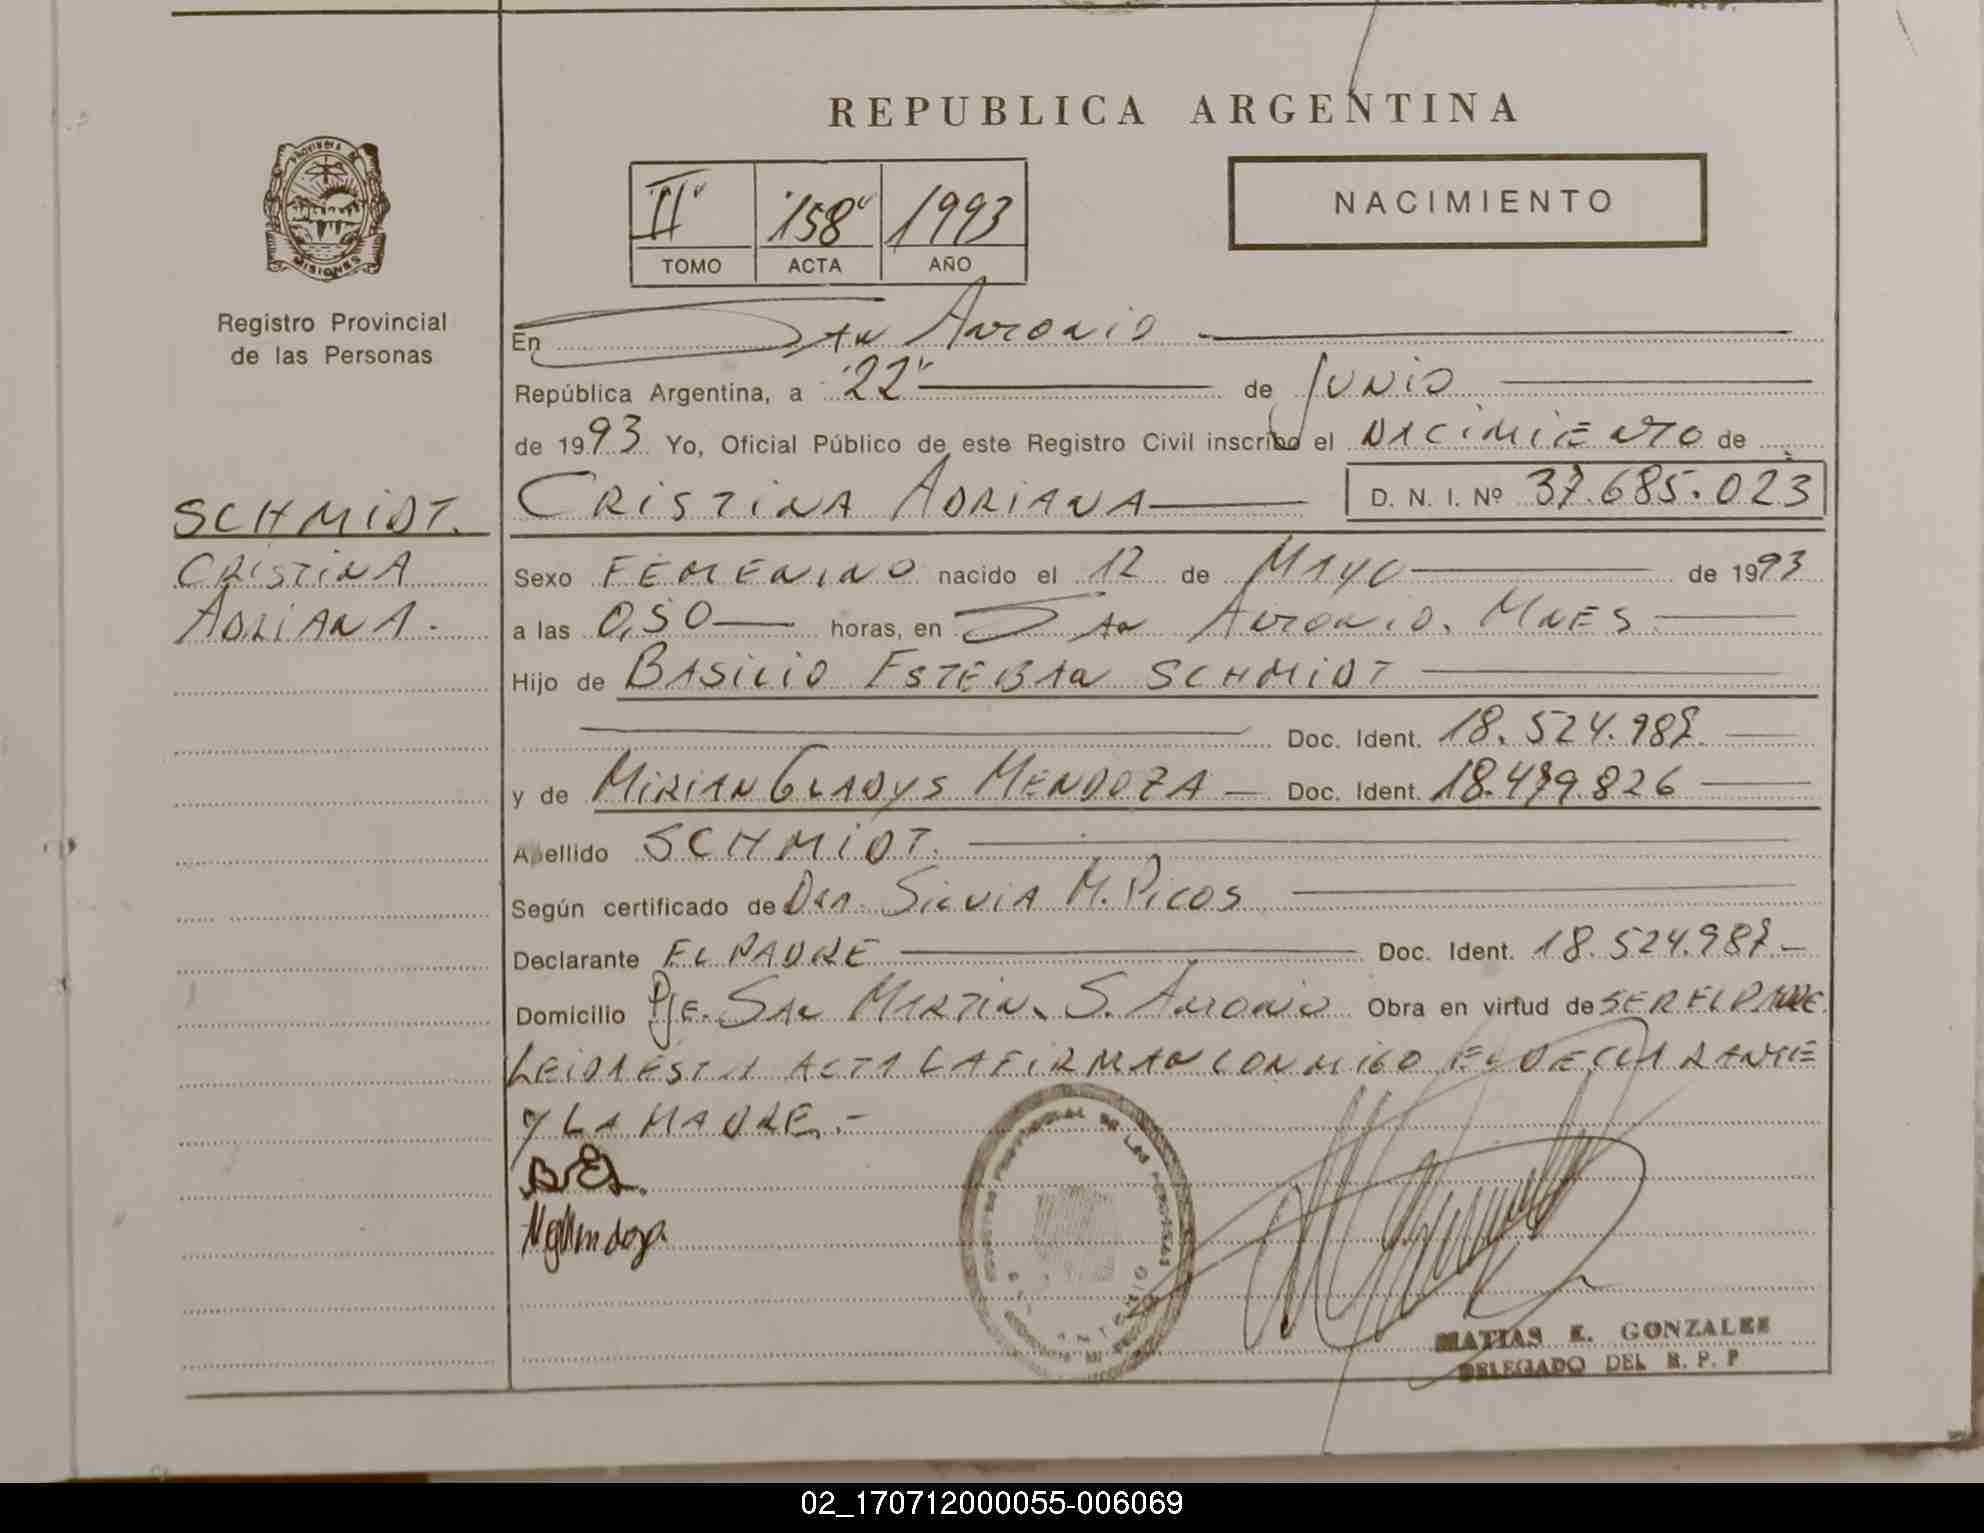 REPUBLICA ARGENTINA
PROVINCIA DE
MISIONES
Registro Provincial
de las Personas
"II" "158" 1993
TOMO ACTA AÑO
NACIMIENTO
En San Antonio
República Argentina, a "22" de Junio
de 1993 Yo, Oficial Público de este Registro Civil inscribo el NACIMIENTO de
SCHMIDT.
CRISTINA
ADRIANA.
CRISTINA ADRIANA D. N. I. Nº 37.685.023
Sexo FEMENINO nacido el 12 de MAYO de 1993
a las 0,50 horas, en San Antonio. MNES
Hijo de BASILIO ESTEBAN SCHMIDT
Doc. Ident. 18.524.987
y de MIRIAN GLADYS MENDOZA Doc. Ident. 18.479.826
Apellido SCHMIDT.
Según certificado de Dra. Silvia M. Picos
Declarante EL PADRE Doc. Ident. 18.524.987.-
Domicilio Pje. San Martin. S. Antonio Obra en virtud de SER EL PADRE.
LEIDA ESTA ACTA LA FIRMAN CONMIGO EL DECLARANTE
Y LA MADRE.-
MGMendoza.
MATIAS E. GONZALEZ
DELEGADO DEL R. P. P
02_170712000055-006069